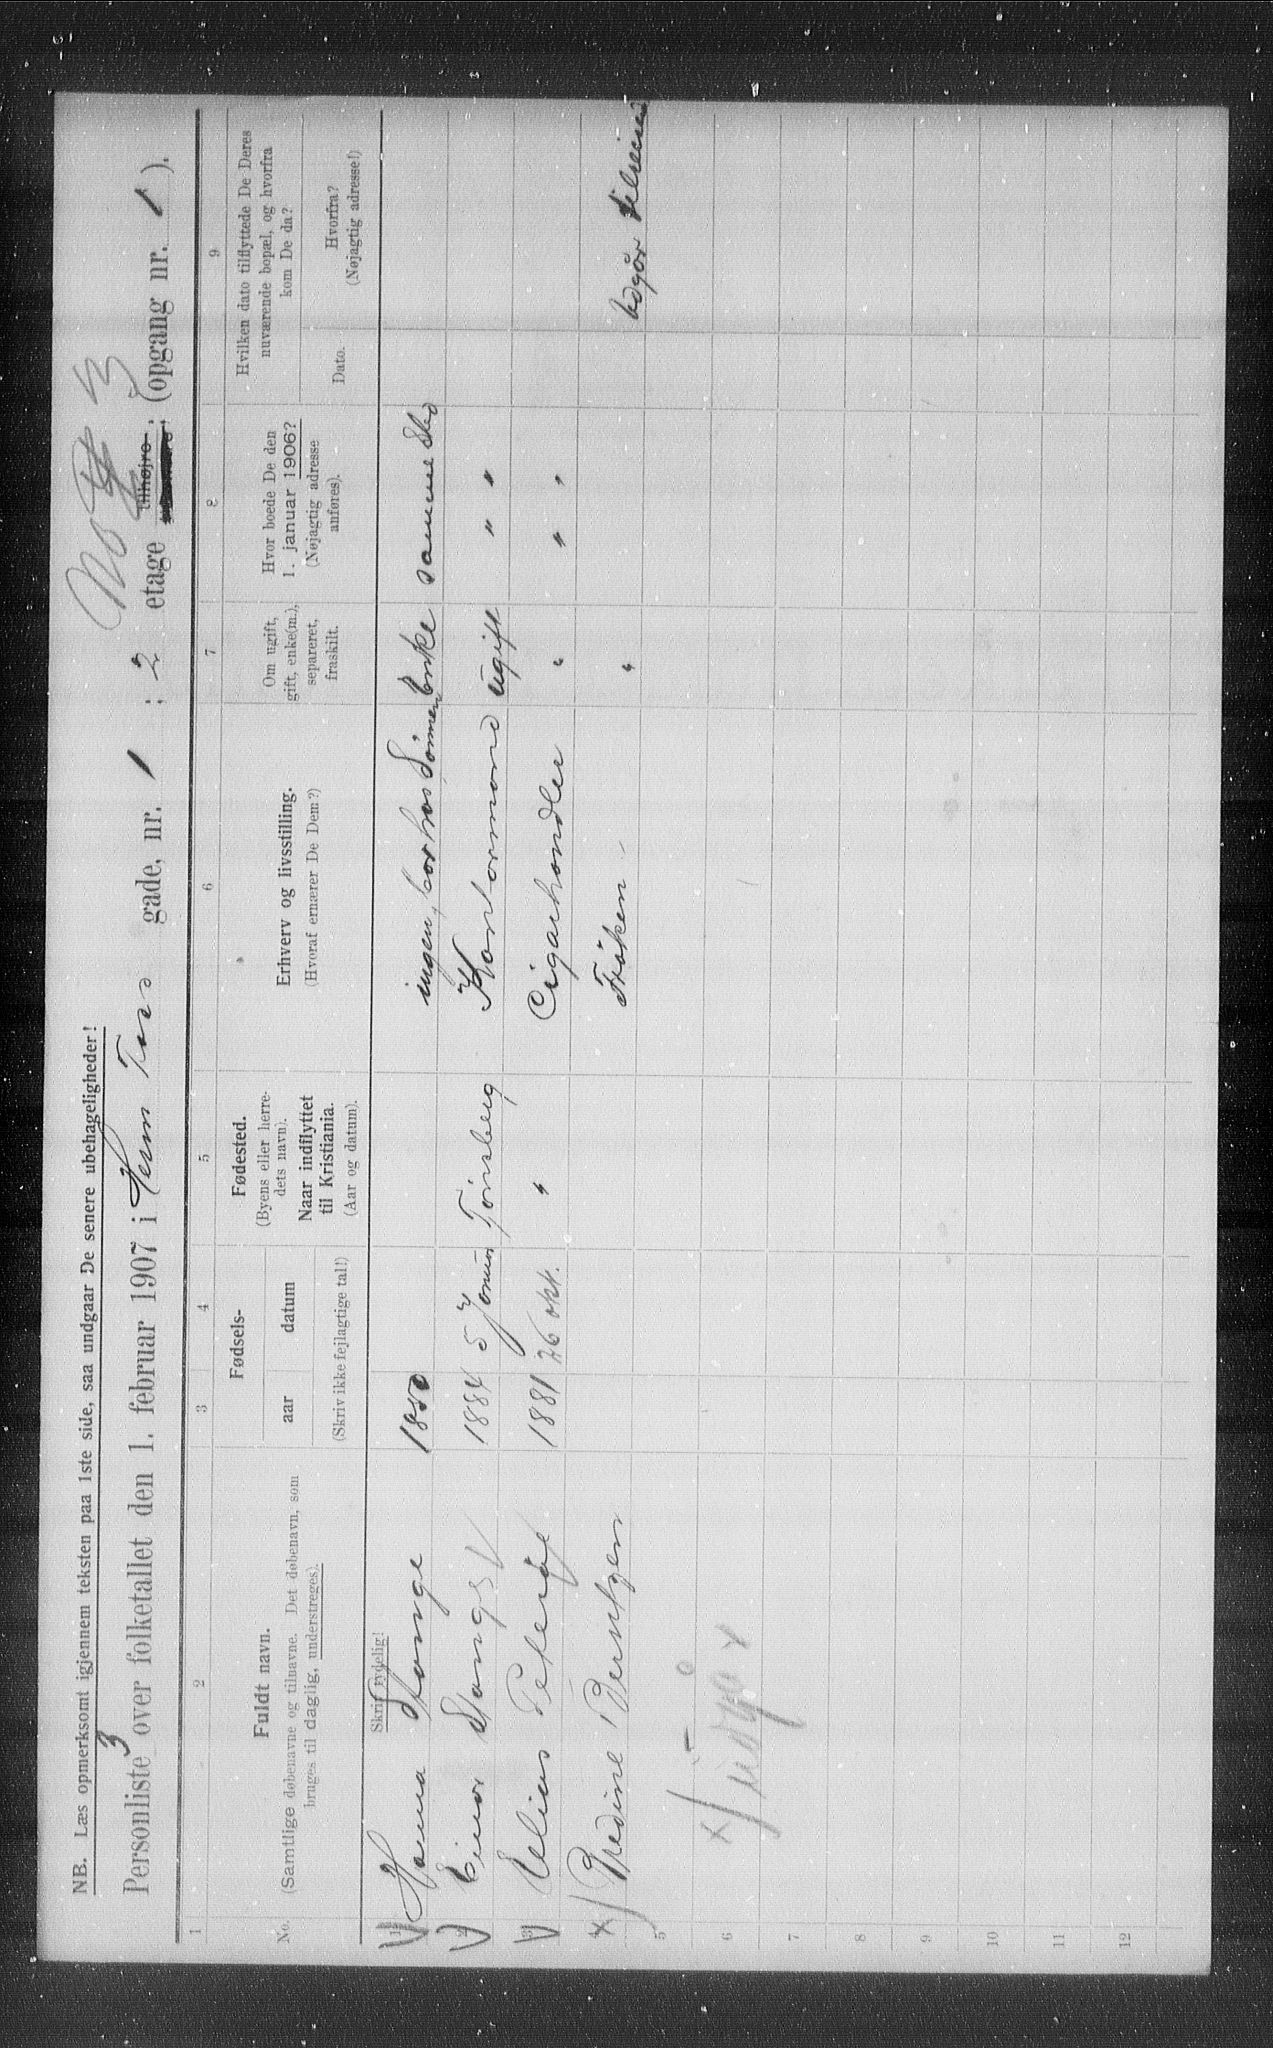 NB. Læs opmerksomt igjennem teksten paa 1ste side, saa undgaar De senere ubehageligheder!
Personliste 3 over folketallet den 1. februar 1907 i Herm Foss gade, nr. 1 ; 2 etage tilhøjre ; (opgang nr. 1 ).
1 2 3 4 5 6 7 8 9
No.
Fuldt navn.
(Samtlige døbenavne og tilnavne. Det døbenavn, som
bruges til daglig, understreges).
Fødsels-
aar datum
(Skriv ikke fejlagtige tal!)
Fødested.
(Byens eller herre-
dets navn).
Naar indflyttet
til Kristiania.
(Aar og datum).
Erhverv og livsstilling.
(Hvoraf ernærer De Dem?)
Om ugift,
gift, enke(m.),
separeret,
fraskilt.
Hvor boede De den
1. januar 1906?
(Nøjagtig adresse
anføres).
Hvilken dato tilflyttede De Deres
nuværende bopæl, og hvorfra
kom De da?
Dato.
Hvorfra?
(Nøjagtig adresse!)
Skriv tydelig!
1 Hanna Stange 1850 ingen, bor hos Sønnen Enke samme Sted
2 Einar Stange 1884 5 Januar Tønsberg Kontormand ugift " "
3 Elias Stange 1881 26 okt. " Cigarhandler " " "
4 x) Fredine Berntzen Frøken "
5
6 x)
7
8
9
10
11
12